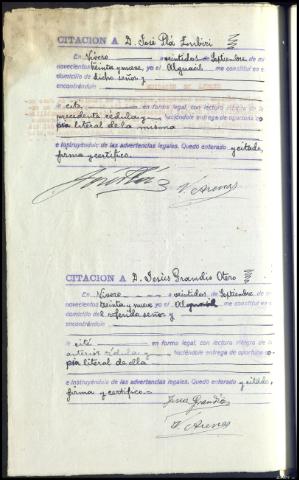 CITACION A D. José Plá Zubiri
En Vivero a veintidos de Septiembre de mil
novecientos treinta y nueve, yo el Alguacil me constituí en el
domicilio de dicho señor y
encontrándole
le cité en forma legal, con lectura íntegra de la
precedente cédula y haciéndole entrega de oportuna co-
pia literal de la misma
e instruyéndole de las advertencias legales. Quedó enterado y citado,
firma y certifico.
José Plá
V. Arenas
CITACION A D. Jesús Grandío Otero
En Vivero a veintidos de Septiembre de mil
novecientos treinta y nueve yo el Alguacil me constituí en el
domicilio del referido señor y
encontrándole
le cité en forma legal, con lectura íntegra de la
anterior cédula y haciéndole entrega de oportuna co-
pia literal de ella
e instruyéndole de las advertencias legales. Quedó enterado y citado,
firma y certifico.
Jesús Grandío
V. Arenas